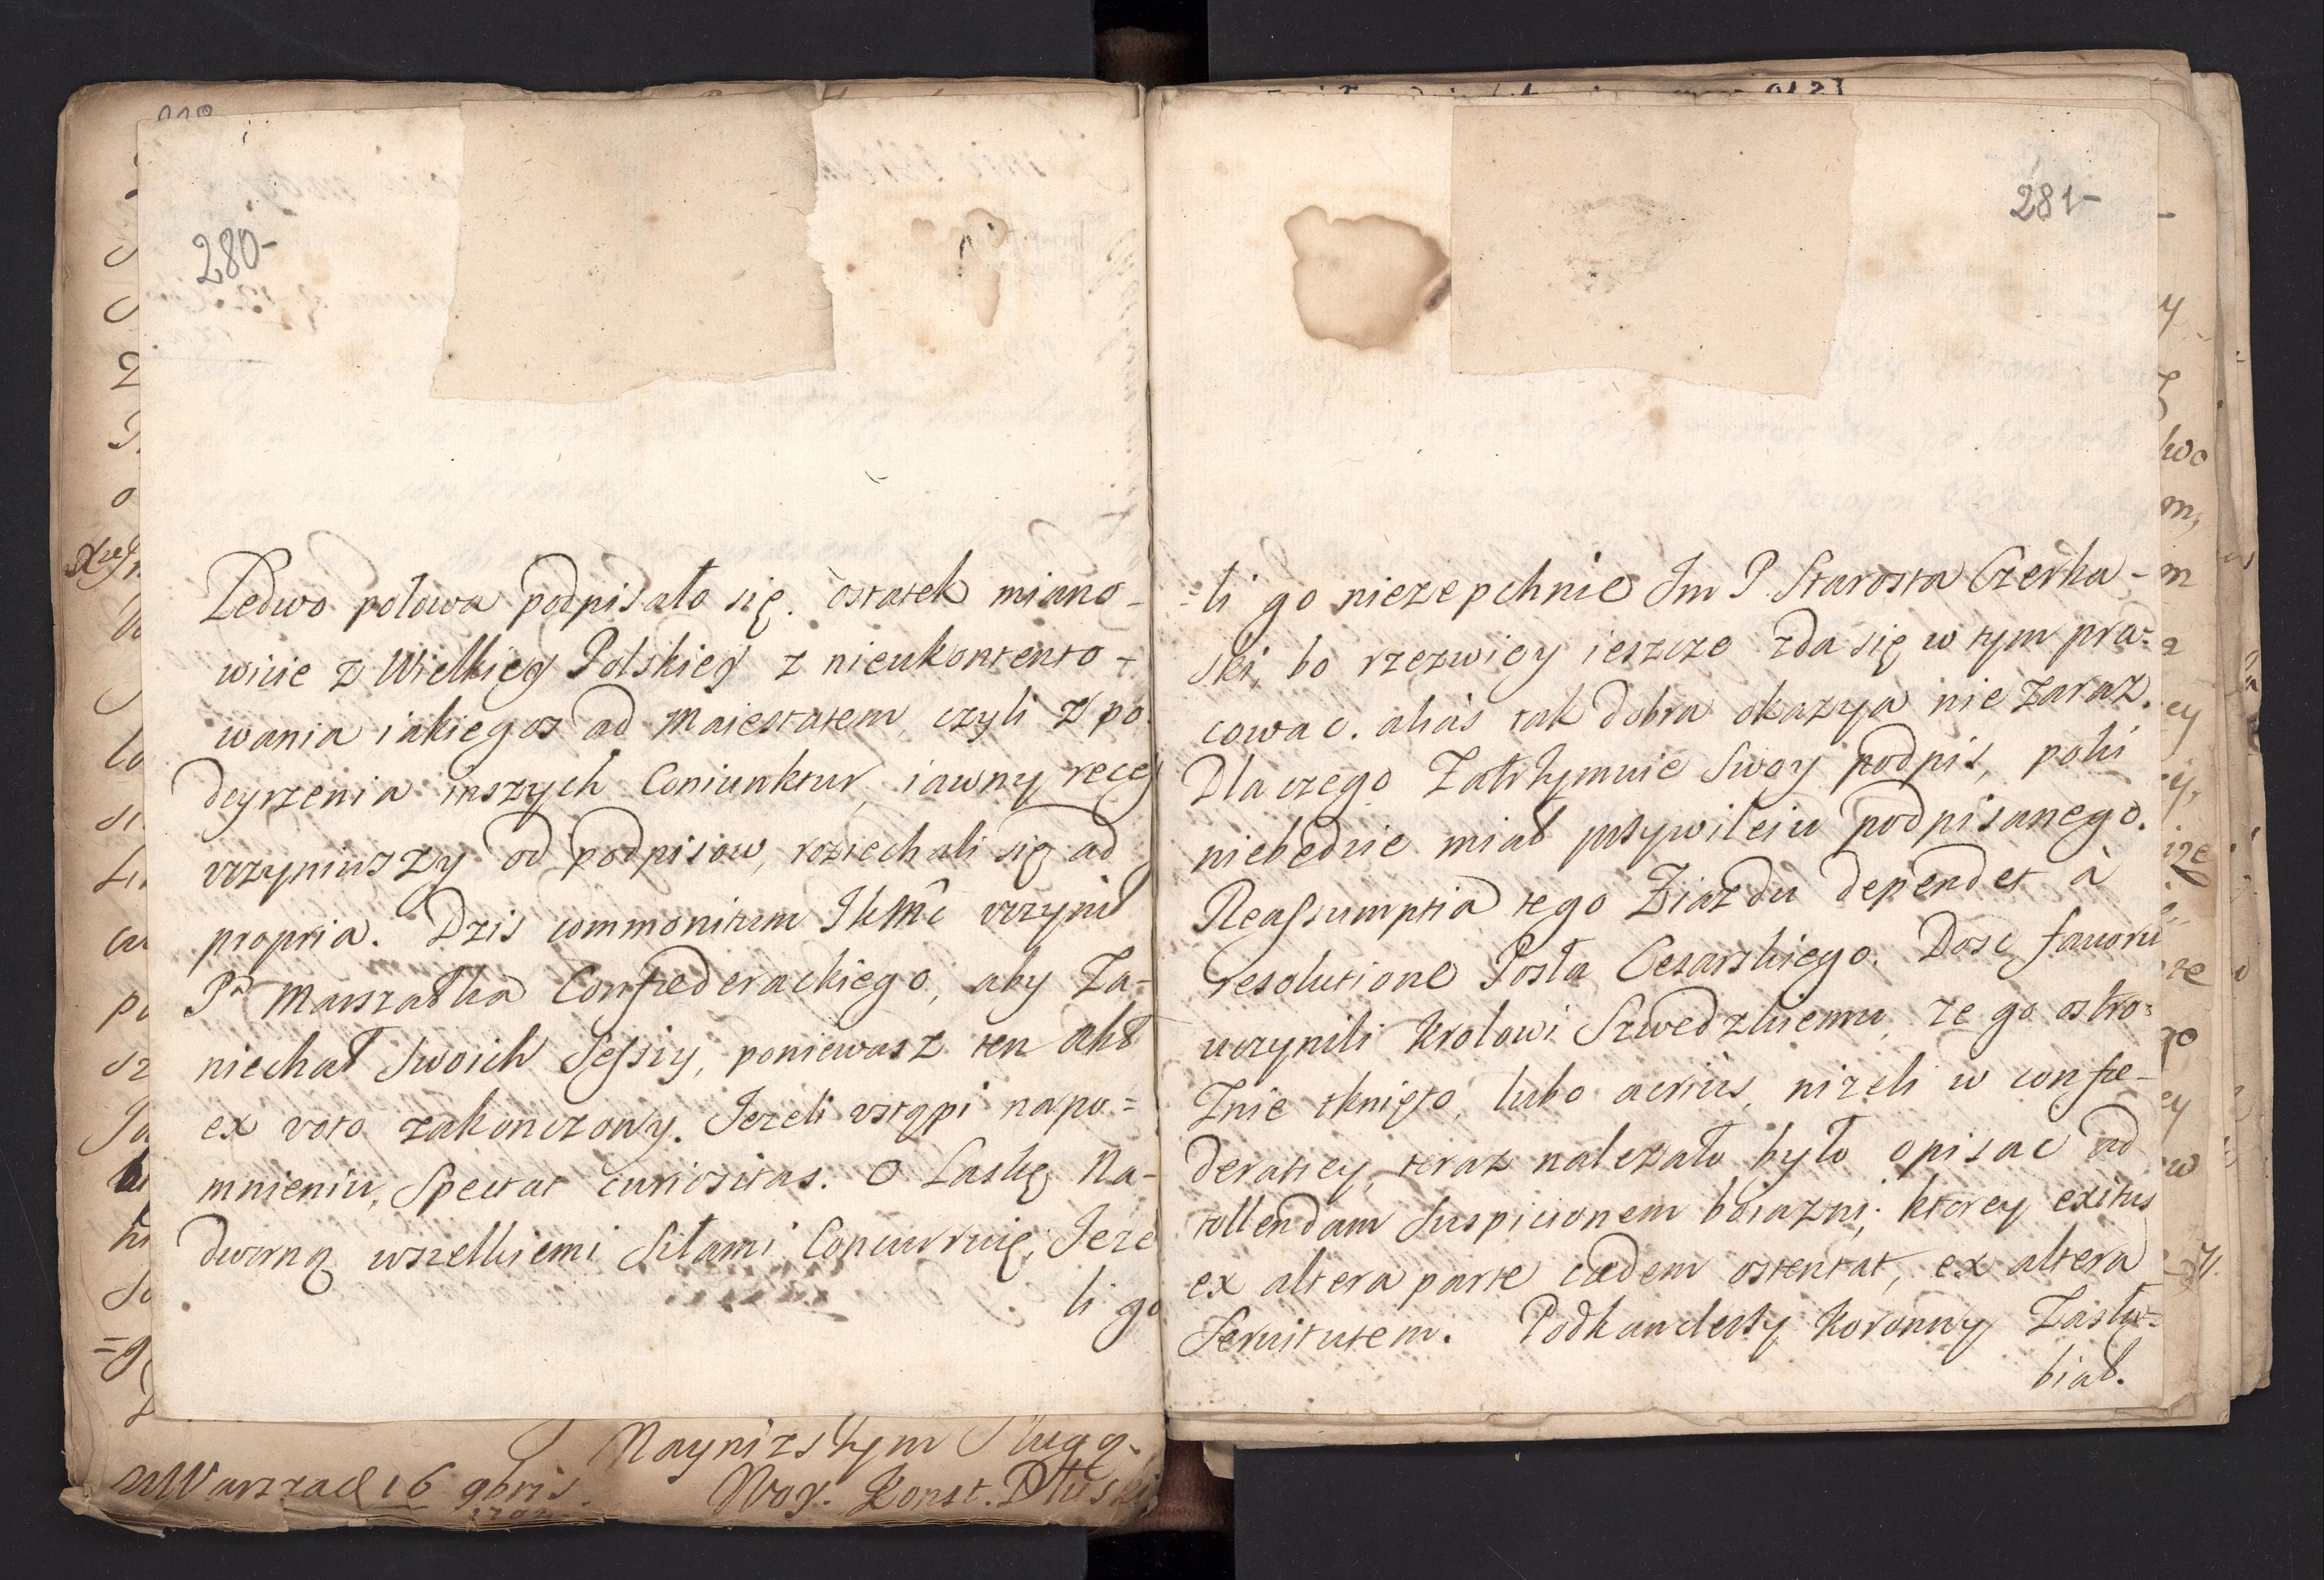 280-
Ledwo połowa podpisało się. ostatek miano-
wicie z Wielkiey Polskiey z nieukontento-
wania iakiegos ad Maiestatem, czyli z po
deyrzenia inszych Coniunktur, iawny reces
vczyniwszy od podpisow, roziechali się ad
propria. Dzis commonitum JKMć vczynił
Pa Marszałka Confœderackiego, aby Za-
niechał Swoich Sessiy, poniewasz ten akt
ex voto zakonczony. Jezeli vstąpi napo=
mnieniu, Spectat curiositas. O Laskę Na-
dworną wszelkiemi Siłami Concurruię, Jeze
li go
281-
=li go niezepchnie Jm P. Starosta Czerka-
ski, bo rzezwiey ieszcze zda się w tym pra=
cowac. aliàs tak dobra okazya nie zaraz.
Dla czego Zatrzymuie Swoy podpis, poki
niebędzie miał przywileiu podpisanego.
Reassumptia tego Ziazdu dependet à
resolutione Posła Cesarskiego. Dosc favoru
uczynili Krolowi Szwedzkiemu, ze go ostro=
Znie tknięto, lubo acriùs, nizeli w confœ-
deratiey teraz nalezało było opisac ad
tollendam Suspicionem boiazni, ktorey exitus
ex altera parte cædem ostentat, ex altera
Seruitutem. Podkanclerzy Koronny Zasłu=
biał.
Nayniższym Sługą.
w Warszad 16 9bris
1702
Woy. Konst. Dłuski